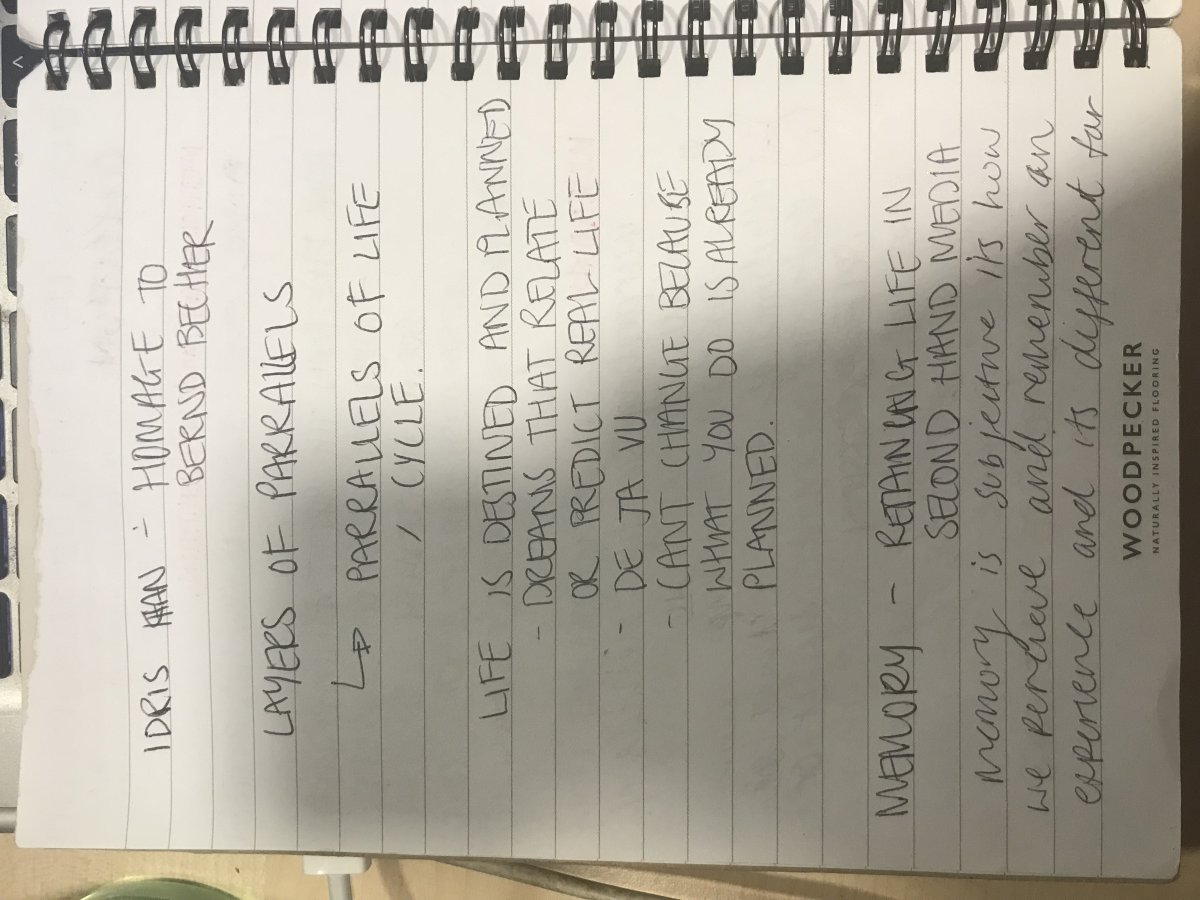 IDRIS KHAN - HOMAGE TO
BERND BECHER
LAYERS OF PARRALLELS
↳ PARRALLELS OF LIFE
/ CYCLE.
LIFE IS DESTINED AND PLANNED
- DREAMS THAT RELATE
OR PREDICT REAL LIFE
- DE JA VU
- CANT CHANGE BECAUSE
WHAT YOU DO IS ALREADY
PLANNED.
MEMORY - LIFE IN
SECOND HAND MEDIA
memory is subjective its how
we percieve and remember an
experience and its different for
WOODPECKER
NATURALLY INSPIRED FLOORING